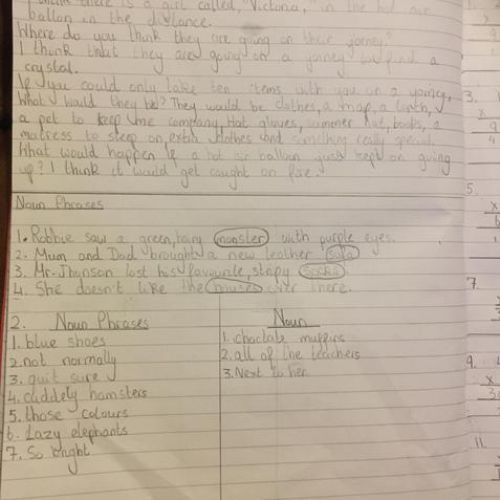 there is a girl called, "Victoria," in the hot air
ballon in the distance.
Where do you think they are going on their jorney?
I think that they are going on a jorney to find a
crystal.
If you could only take ten items with you on a jorney,
What would they be? They would be clothes, a map, a torch,
a pet to keep me company, Hat gloves, summer hat, books, a
matress to sleep on, extra clothes and something really special.
What would happen if a hot air balloon just kept on going
up? I think it would get caught on fire.
Noun Phrases
1. Robbie saw a green, hairy monster with purple eyes.
2. Mum and Dad brought a new leather sofa
3. Mr. Jhonson lost his favourite, stripy socks
4. She doesn't like the houses over there.
2. Noun Phrases
Noun
1. blue shoes
1. choclate muffins
2. not normally
2. all of the teachers
3. quit sure
3. Next to her
4. cuddely hamsters
5. those colours
6. Lazy elephants
7. So bright
3.
5.
7.
9.
11.